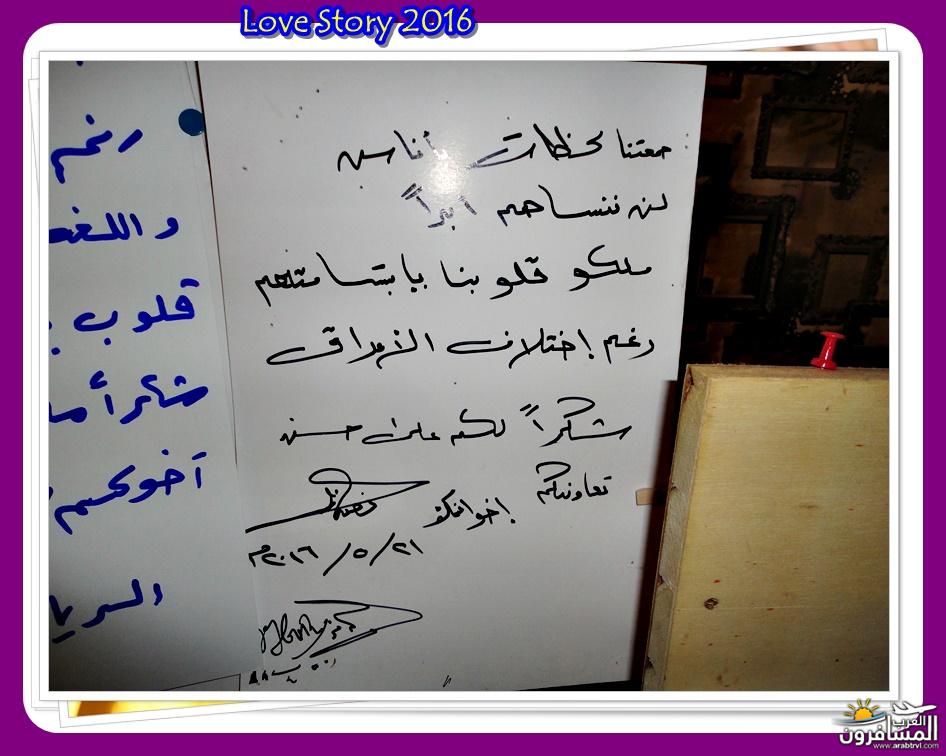 Love Story 2016
جمعتنا لحظات أناس
لن ننساهم أبداً
ملكو قلوبنا بابتسامتهم
رغم إختلاف الأذواق
شكراً لكم على حسن
تعاونكم
إخوانكم
٢١/٥/٢٠١٦م
رغم
و اللغة
قلوب
شكراً
أخوكم
العرب
المسافرون
www.arabtrvl.com